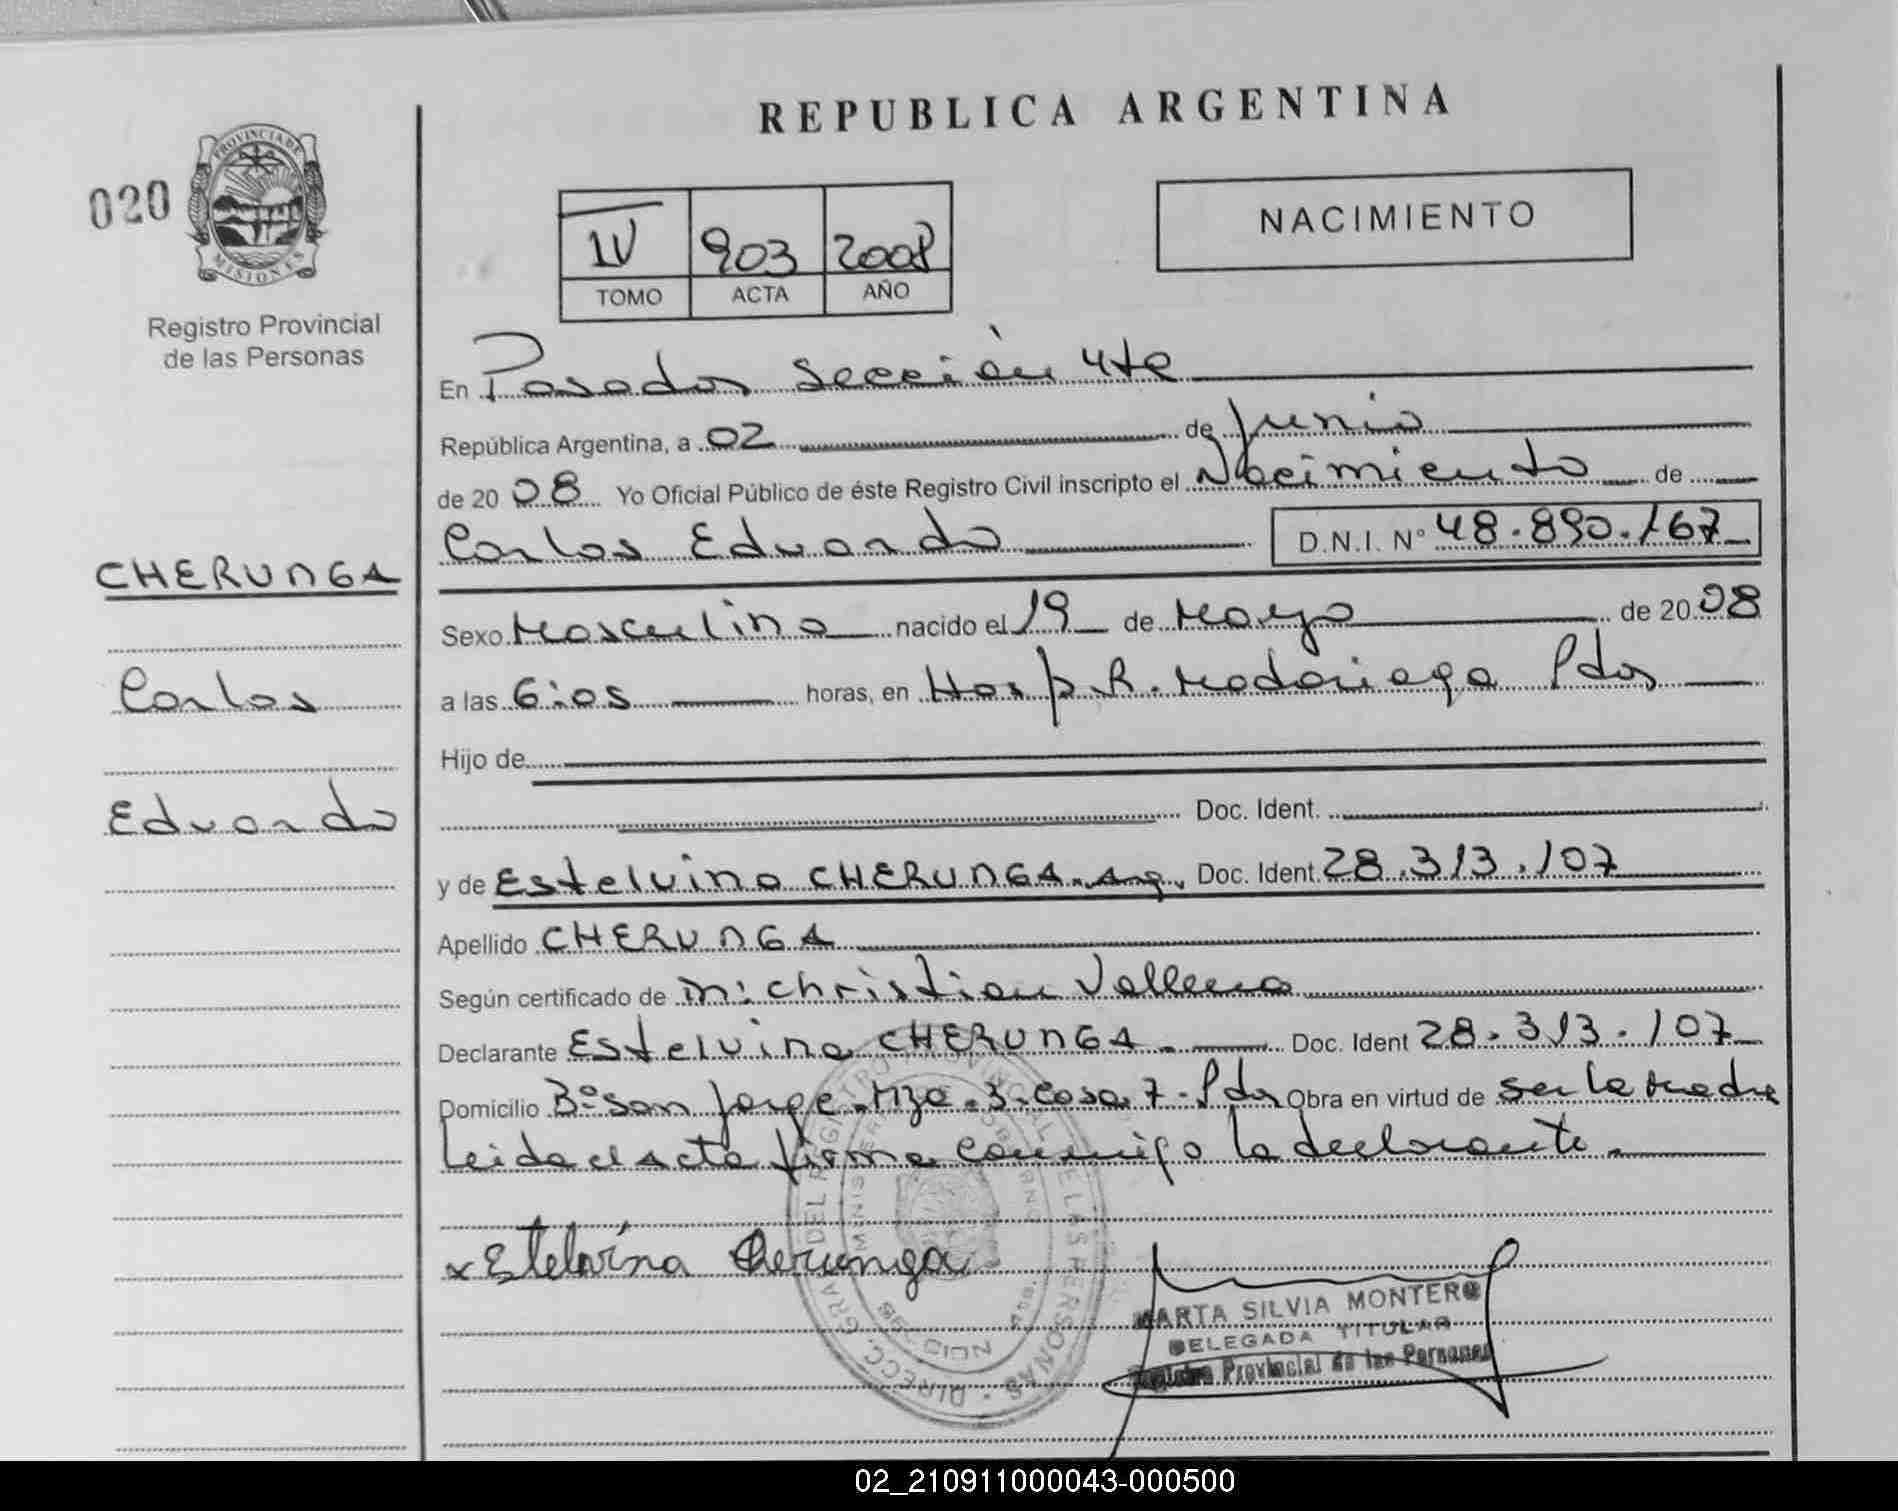 REPUBLICA ARGENTINA
020
PROVINCIA DE
MISIONES
Registro Provincial
de las Personas
IV 903 2008
TOMO ACTA AÑO
NACIMIENTO
En Posadas Sección 4ta
República Argentina, a 02 de Junio
de 20 08 Yo Oficial Público de éste Registro Civil inscripto el Nacimiento de
Carlos Eduardo D.N.I. N° 48.890.167
CHERUNGA
Carlos
Eduardo
Sexo Masculino nacido el 19 de Mayo de 20 08
a las 6:05 horas, en Hosp. R. Madariaga Pdas
Hijo de
Doc. Ident.
y de Estelvina CHERUNGA. Arg. Doc. Ident. 28.313.107
Apellido CHERUNGA
Según certificado de m: Christian Vallena
Declarante Estelvina CHERUNGA. Doc. Ident 28.313.107
Domicilio Bº San Jorge. Mza. 3. Casa 7. Pdas Obra en virtud de ser la madre
Leida el Acta firma conmigo la declarante.
x Estelvina Cherunga
MARTA SILVIA MONTERO
DELEGADA TITULAR
Registro Provincial de las Personas
DIRECC. GRAL. DEL REGISTRO PROVINCIAL DE LAS PERSONAS
02_210911000043-000500